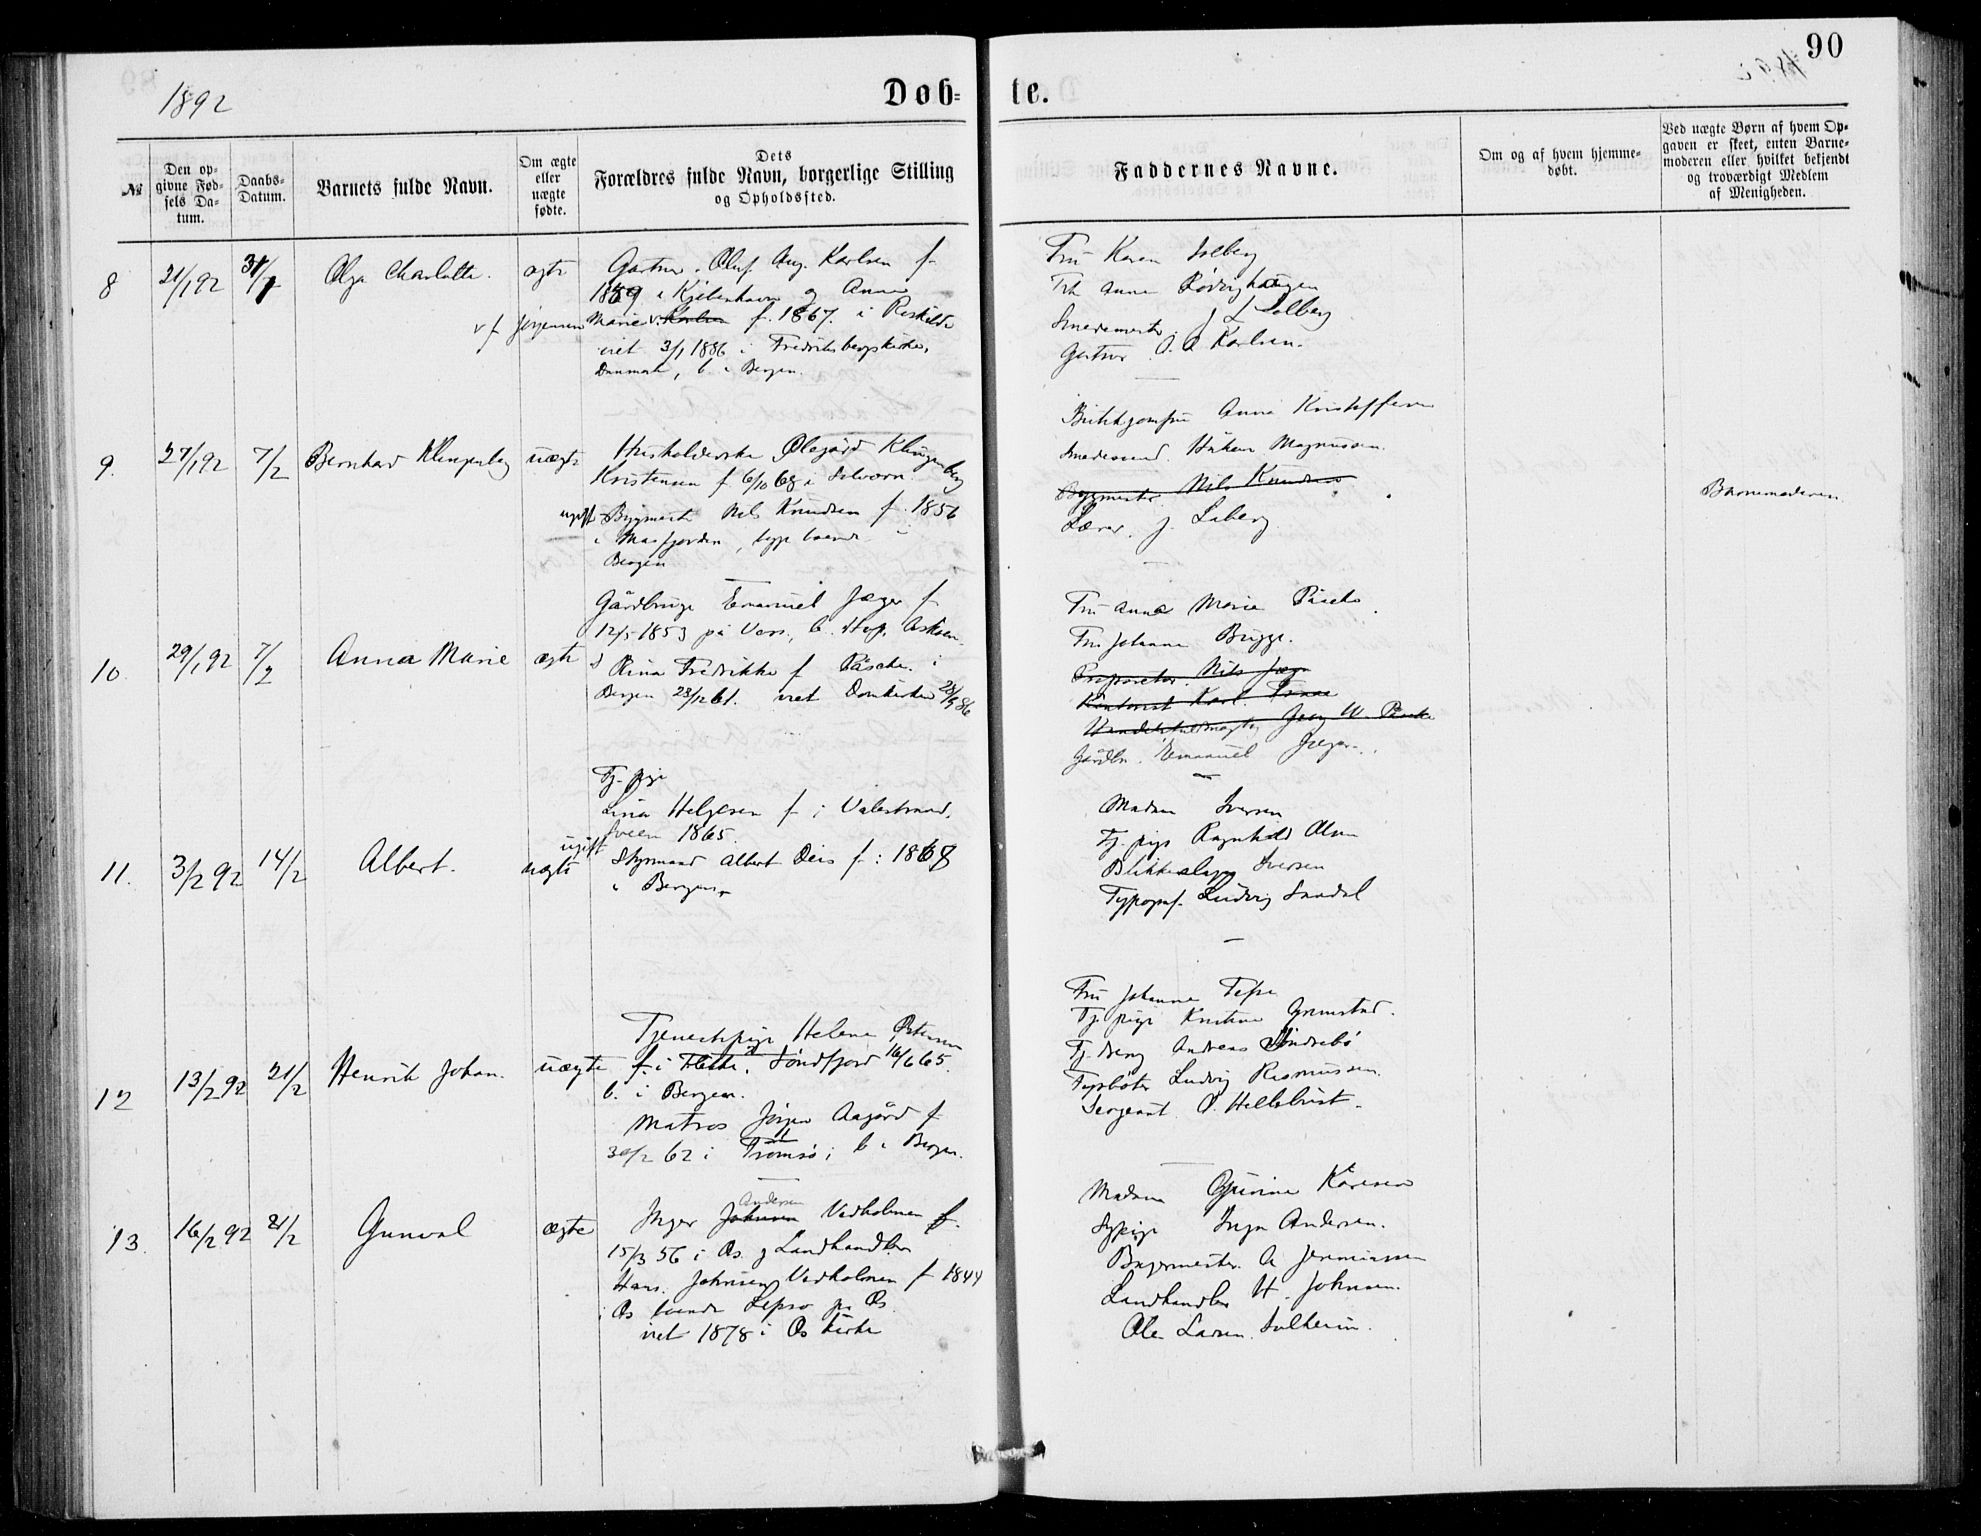 90
1892
Døb-
te.
№
Den op-
givne Fød-
sels Da-
tum.
Daabs-
Datum.
Barnets fulde Navn.
Om ægte
eller
uægte
fødte.
Dets
Forældres fulde Navn, borgerlige Stilling
og Opholdssted.
Faddernes Navne.
Om og af hvem hjemme-
døbt.
Ved uægte Børn af hvem Op-
gaven er skeet, enten Barne-
moderen eller hvilket bekjendt
og troværdigt Medlem
af Menigheden.
8
21/1 92
31/1
Olga Charlotte.
ægte
Gartner. Oluf Aug. Karlsen f
1859 i Kjøbenhavn og Anna
v f Jørgensen Marie f. 1867. i Roskilde
viet 3/1 1886 i Fredriksbergskirke,
Danmark, b. i Bergen.
Fru Karen Solberg
Frk Anna
Smedemester J L Solberg
Gartner O. A Karlsen.
9.
27/1 92
7/2
Bernhard Klingenberg
uægte
Husholderske Olegård Klingenberg
Kristensen f 6/10 68 i Solvorn.
ugift Bygmester Nils Knudsen f. 1856
i Masfjorden, begge boende i
Bergen
Anna Kristoffersen
Smedesvend. Håkon Magnussen.
Bygmester. Nils Knudsen
Lærer. J. Laberg.
Barnemoderen.
10
29/1 92
7/2
Anna Marie
ægte
Gårdbruger Emanuel Jæger f
12/5 1853 på Voss, b. Hop, Askøen.
Fredrikke f Påsche. i
Bergen 28/12 61. viet Domkirken 28/9 86
Fru Anna Marie Påsche
Fru Johanne Brügge.
Proprietær. Nils Jæger
Kontorist Karl.
Gårdbr. Emanuel Jæger.
11.
3/2 92
14/2
Albert.
uægte
Tj. pige
Lina Helgesen f i Valestrand,
Sveen 1865.
ugift Styrmand Albert f: 1868
i Bergen.
Madam Iversen
Tj. pige Ragnhild Olsen
Iversen
Typograf. Ludvig Sandal
12
13/2 92
21/2
Henrik Johan.
uægte
Tjenestepige Helene Østensen
f. i Søndfjord 16/6 65.
b. i Bergen.
Matros Jörgen Aagård f
30/2 62 i Tromsø; b i Bergen.
Fru Johanne
Tj. pige Kristine Grimstad.
Tj. dreng Andreas Söndrebö
Fyrbøter Ludvig Rasmussen.
Sergeant. O. Hellebust.
13.
16/2 92
21/2
Gunval
ægte
Andersen
Inger Johnsen Vedholmen f.
15/3 56 i Os. g Landhandler
Hans. Johnsen Vedholmen f 1844
i Os boende Lepsø pr Os.
viet 1878 i Os kirke
Madam Gurine Kåresen
Sypige Inga Andersen.
A Jeremiassen
Landhandler H. Johnsen.
Ole Larsen. Solheim.